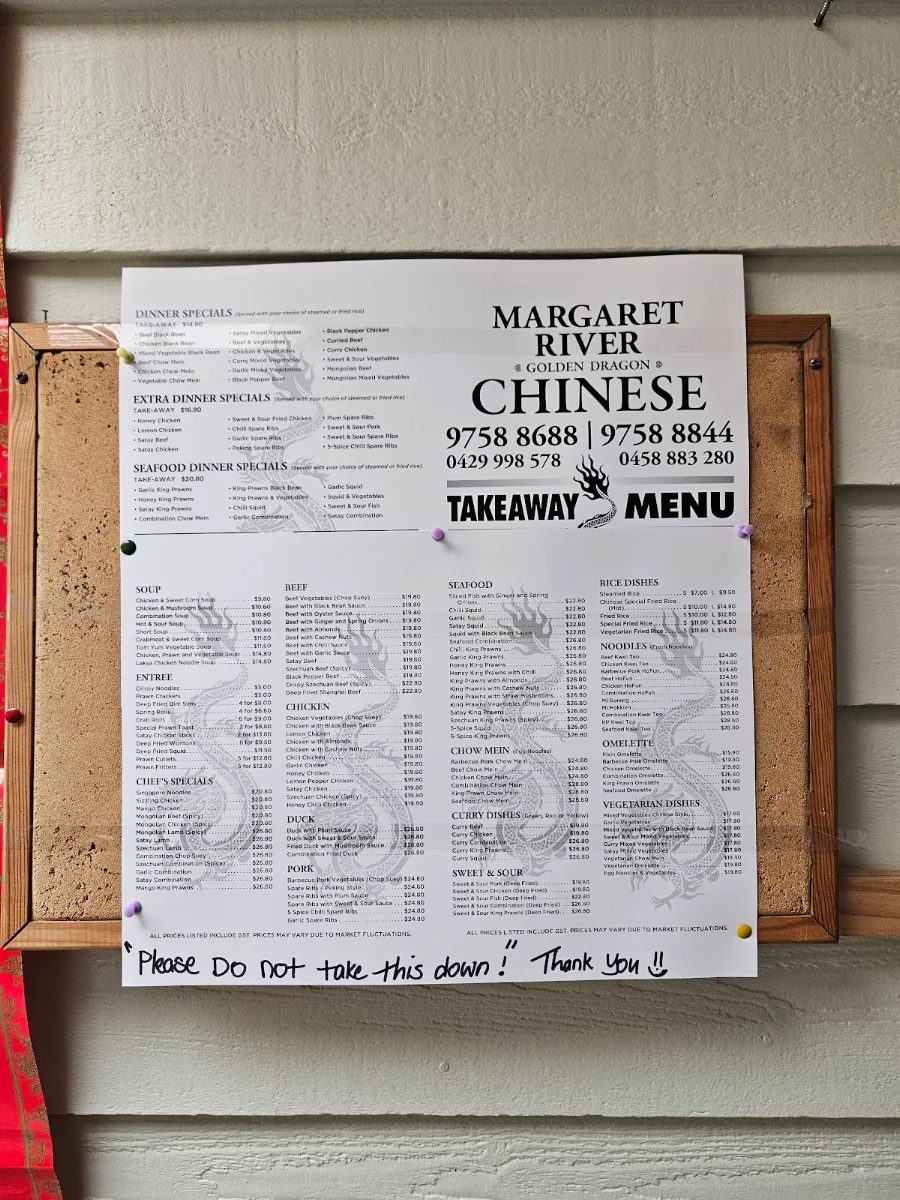 DINNER SPECIALS (Served with your choice of steamed or fried rice)
TAKE-AWAY $14.80
• Beef Black Bean
• Chicken Black Bean
• Mixed Vegetable Black Bean
• Beef Chow Mein
• Chicken Chow Mein
• Vegetable Chow Mein
• Satay Mixed Vegetables
• Beef & Vegetables
• Chicken & Vegetables
• Curry Mixed Vegetables
• Garlic Mixed Vegetables
• Black Pepper Beef
• Black Pepper Chicken
• Curried Beef
• Curry Chicken
• Sweet & Sour Vegetables
• Mongolian Beef
• Mongolian Mixed Vegetables
EXTRA DINNER SPECIALS (Served with your choice of steamed or fried rice)
TAKE-AWAY $16.80
• Honey Chicken
• Lemon Chicken
• Satay Beef
• Satay Chicken
• Sweet & Sour Fried Chicken
• Chilli Spare Ribs
• Garlic Spare Ribs
• Peking Spare Ribs
• Plum Spare Ribs
• Sweet & Sour Pork
• Sweet & Sour Spare Ribs
• 5-Spice Chilli Spare Ribs
SEAFOOD DINNER SPECIALS (Served with your choice of steamed or fried rice)
TAKE-AWAY $20.80
• Garlic King Prawns
• Honey King Prawns
• Satay King Prawns
• Combination Chow Mein
• King Prawns Black Bean
• King Prawns & Vegetables
• Chilli Squid
• Garlic Combination
• Garlic Squid
• Squid & Vegetables
• Sweet & Sour Fish
• Satay Combination
MARGARET
RIVER
GOLDEN DRAGON
CHINESE
9758 8688 | 9758 8844
0429 998 578 0458 883 280
TAKEAWAY MENU
SOUP
Chicken & Sweet Corn Soup $9.80
Chicken & Mushroom Soup $10.60
Combination Soup $10.80
Hot & Sour Soup $10.80
Short Soup $10.80
Crabmeat & Sweet Corn Soup $11.60
Tom Yum Vegetable Soup $11.60
Chicken, Prawn and Vegetable Soup $14.80
Laksa Chicken Noodle Soup $14.80
ENTREE
Crispy Noodles $5.00
Prawn Crackers $5.00
Deep Fried Dim Simy 4 for $8.00
Spring Rolls 4 for $6.60
Crab Rolls 6 for $9.00
Special Prawn Toast 2 for $8.80
Satay Chicken Sticks 2 for $13.80
Deep Fried Wontons 8 for $9.50
Deep Fried Squid $11.50
Prawn Cutlets 5 for $12.80
Prawn Fritters 5 for $12.80
CHEF'S SPECIALS
Singapore Noodles $20.80
Sizzling Chicken $20.80
Mango Chicken $20.80
Mongolian Beef (Spicy) $20.80
Mongolian Chicken (Spicy) $20.80
Mongolian Lamb (Spicy) $26.80
Satay Lamb $26.80
Szechuan Lamb $26.80
Combination Chop Suey $26.80
Szechuan Combination (Spicy) $26.80
Garlic Combination $26.80
Satay Combination $26.80
Mango King Prawns $26.80
BEEF
Beef Vegetables (Chop Suey) $19.80
Beef with Black Bean Sauce $19.80
Beef with Oyster Sauce $19.80
Beef with Ginger and Spring Onions $19.80
Beef with Almonds $19.80
Beef with Cashew Nuts $19.80
Beef with Chilli Sauce $19.80
Beef with Garlic Sauce $19.80
Satay Beef $19.80
Szechuan Beef (Spicy) $19.80
Black Pepper Beef $19.80
Crispy Szechuan Beef (Spicy) $22.80
Deep Fried Shanghai Beef $22.80
CHICKEN
Chicken Vegetables (Chop Suey) $19.80
Chicken with Black Bean Sauce $19.80
Lemon Chicken $19.80
Chicken with Almonds $19.80
Chicken with Cashew Nuts $19.80
Chilli Chicken $19.80
Garlic Chicken $19.80
Honey Chicken $19.80
Lemon Pepper Chicken $19.80
Satay Chicken $19.80
Szechuan Chicken (Spicy) $19.80
Honey Chilli Chicken $19.80
DUCK
Duck with Plum Sauce $26.80
Duck with Sweet & Sour Sauce $26.80
Fried Duck with Mushroom Sauce $26.80
Combination Fried Duck $26.80
PORK
Barbecue Pork Vegetables (Chop Suey) $24.80
Spare Ribs - Peking Style $24.80
Spare Ribs with Plum Sauce $24.80
Spare Ribs with Sweet & Sour Sauce $24.80
5 Spice Chilli Spare Ribs $24.80
Garlic Spare Ribs $24.80
SEAFOOD
Sliced Fish with Ginger and Spring
Onions $22.80
Chilli Squid $22.80
Garlic Squid $22.80
Satay Squid $22.80
Squid with Black Bean Sauce $22.80
Seafood Combination $26.80
Chilli King Prawns $26.80
Garlic King Prawns $26.80
Honey King Prawns $26.80
Honey King Prawns with Chilli $26.80
King Prawns with Almonds $26.80
King Prawns with Cashew Nuts $26.80
King Prawns with Straw Mushrooms $26.80
King Prawns Vegetables (Chop Suey) $26.80
Satay King Prawns $26.80
Szechuan King Prawns (Spicy) $26.80
5-Spice Squid $26.80
5-Spice King Prawns $26.80
CHOW MEIN (Egg Noodles)
Barbecue Pork Chow Mein $24.80
Beef Chow Mein $24.80
Chicken Chow Mein $24.80
Combination Chow Mein $28.80
King Prawn Chow Mein $28.80
Seafood Chow Mein $28.80
CURRY DISHES (Green, Red or Yellow)
Curry Beef $19.80
Curry Chicken $19.80
Curry Combination $26.80
Curry King Prawns $26.80
Curry Squid $26.80
SWEET & SOUR
Sweet & Sour Pork (Deep Fried) $19.80
Sweet & Sour Chicken (Deep Fried) $19.80
Sweet & Sour Fish (Deep Fried) $22.80
Sweet & Sour Combination (Deep Fried) $26.80
Sweet & Sour King Prawns (Deep Fried) $26.80
RICE DISHES
Steamed Rice S $7.00 L $9.50
Chinese Special Fried Rice
(Hot) S $10.00 L $14.80
Fried Rice S $10.00 L $12.80
Special Fried Rice S $11.80 L $14.80
Vegetarian Fried Rice S $11.80 L $14.80
NOODLES (Fresh Noodles)
Beef Kwei Teo $24.80
Chicken Kwei Teo $24.80
Barbecue Pork HoFun $24.80
Beef HoFun $24.80
Chicken HoFun $24.80
Combination HoFun $26.80
Mi Goreng $26.80
Mi Hokkien $26.80
Combination Kwei Teo $26.80
KP Kwei Teo $28.80
Seafood Kwei Teo $28.80
OMELETTE
Plain Omelette $15.90
Barbecue Pork Omelette $19.80
Chicken Omelette $19.80
Combination Omelette $26.80
King Prawn Omelette $26.80
Seafood Omelette $26.80
VEGETARIAN DISHES
Mixed Vegetables Chinese Style $17.80
Garlic Vegetables $17.80
Mixed Vegetables with Black Bean Sauce $17.80
Sweet & Sour Mixed Vegetables $17.80
Curry Mixed Vegetables $17.80
Satay Mixed Vegetables $17.80
Vegetarian Chow Mein $19.80
Vegetarian Omelette $19.80
Egg Noodles & Vegetables $19.80
ALL PRICES LISTED INCLUDE GST. PRICES MAY VARY DUE TO MARKET FLUCTUATIONS.
ALL PRICES LISTED INCLUDE GST. PRICES MAY VARY DUE TO MARKET FLUCTUATIONS.
"Please Do not take this down!" Thank You !!